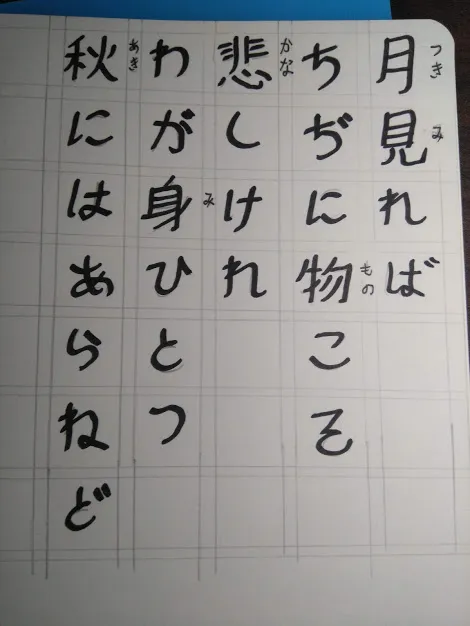 月見れば
ちぢに物こそ
悲しけれ
わが身ひとつ
秋にはあらねど
つき
み
もの
かな
み
あき